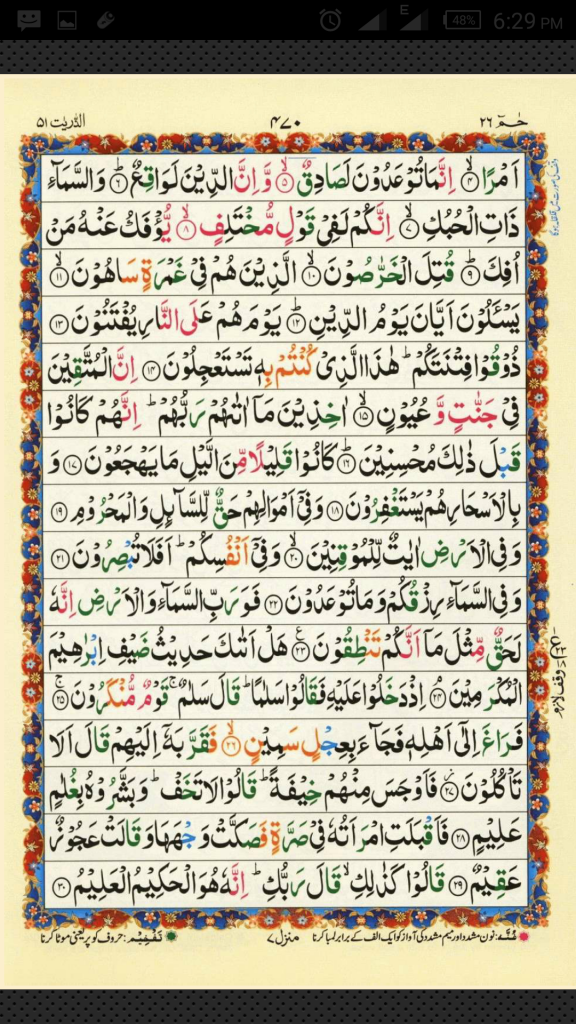 E 48% 6:29 PM
الذّٰریٰت ۵۱ ۴۷۰ حٰمٓ ۲۶
اَمْرًا ۙ﴿۴﴾ اِنَّمَا تُوْعَدُوْنَ لَصَادِقٌ ۙ﴿۵﴾ وَّ اِنَّ الدِّیْنَ لَوَاقِعٌ ؕ﴿۶﴾ وَ السَّمَآءِ
ذَاتِ الْحُبُكِ ۙ﴿۷﴾ اِنَّكُمْ لَفِیْ قَوْلٍ مُّخْتَلِفٍ ۙ﴿۸﴾ یُّؤْفَكُ عَنْهُ مَنْ
اُفِكَ ؕ﴿۹﴾ قُتِلَ الْخَرّٰصُوْنَ ۙ﴿۱۰﴾ الَّذِیْنَ هُمْ فِیْ غَمْرَةٍ سَاهُوْنَ ۙ﴿۱۱﴾
یَسْـَٔلُوْنَ اَیَّانَ یَوْمُ الدِّیْنِ ؕ﴿۱۲﴾ یَوْمَ هُمْ عَلَی النَّارِ یُفْتَنُوْنَ ﴿۱۳﴾
ذُوْقُوْا فِتْنَتَكُمْ ؕ هٰذَا الَّذِیْ كُنْتُمْ بِهٖ تَسْتَعْجِلُوْنَ ﴿۱۴﴾ اِنَّ الْمُتَّقِیْنَ
فِیْ جَنّٰتٍ وَّ عُیُوْنٍ ۙ﴿۱۵﴾ اٰخِذِیْنَ مَاۤ اٰتٰىهُمْ رَبُّهُمْ ؕ اِنَّهُمْ كَانُوْا
قَبْلَ ذٰلِكَ مُحْسِنِیْنَ ؕ﴿۱۶﴾ كَانُوْا قَلِیْلًا مِّنَ الَّیْلِ مَا یَهْجَعُوْنَ ﴿۱۷﴾ وَ
بِالْاَسْحَارِ هُمْ یَسْتَغْفِرُوْنَ ﴿۱۸﴾ وَ فِیْۤ اَمْوَالِهِمْ حَقٌّ لِّلسَّآىِٕلِ وَ الْمَحْرُوْمِ ﴿۱۹﴾
وَ فِی الْاَرْضِ اٰیٰتٌ لِّلْمُوْقِنِیْنَ ۙ﴿۲۰﴾ وَ فِیْۤ اَنْفُسِكُمْ ؕ اَفَلَا تُبْصِرُوْنَ ﴿۲۱﴾
وَ فِی السَّمَآءِ رِزْقُكُمْ وَ مَا تُوْعَدُوْنَ ﴿۲۲﴾ فَوَرَبِّ السَّمَآءِ وَ الْاَرْضِ اِنَّهٗ
لَحَقٌّ مِّثْلَ مَاۤ اَنَّكُمْ تَنْطِقُوْنَ ﴿۲۳﴾ هَلْ اَتٰىكَ حَدِیْثُ ضَیْفِ اِبْرٰهِیْمَ
الْمُكْرَمِیْنَ ۘ﴿۲۴﴾ اِذْ دَخَلُوْا عَلَیْهِ فَقَالُوْا سَلٰمًا ؕ قَالَ سَلٰمٌ ۚ قَوْمٌ مُّنْكَرُوْنَ ﴿۲۵﴾
فَرَاغَ اِلٰۤی اَهْلِهٖ فَجَآءَ بِعِجْلٍ سَمِیْنٍ ۙ﴿۲۶﴾ فَقَرَّبَهٗۤ اِلَیْهِمْ قَالَ اَلَا
تَاْكُلُوْنَ ﴿۲۷﴾ فَاَوْجَسَ مِنْهُمْ خِیْفَةً ؕ قَالُوْا لَا تَخَفْ ؕ وَ بَشَّرُوْهُ بِغُلٰمٍ
عَلِیْمٍ ﴿۲۸﴾ فَاَقْبَلَتِ امْرَاَتُهٗ فِیْ صَرَّةٍ فَصَكَّتْ وَجْهَهَا وَ قَالَتْ عَجُوْزٌ
عَقِیْمٌ ﴿۲۹﴾ قَالُوْا كَذٰلِكِ ۙ قَالَ رَبُّكِ ؕ اِنَّهٗ هُوَ الْحَكِیْمُ الْعَلِیْمُ ﴿۳۰﴾
غُنَّہ: نون مشدد اور میم مشدد کی آواز کو ایک الف کے برابر لمبا کرنا منزل ۷ تَفْخِیْم: حروف کو پر یعنی موٹا کرنا
وقف لازم